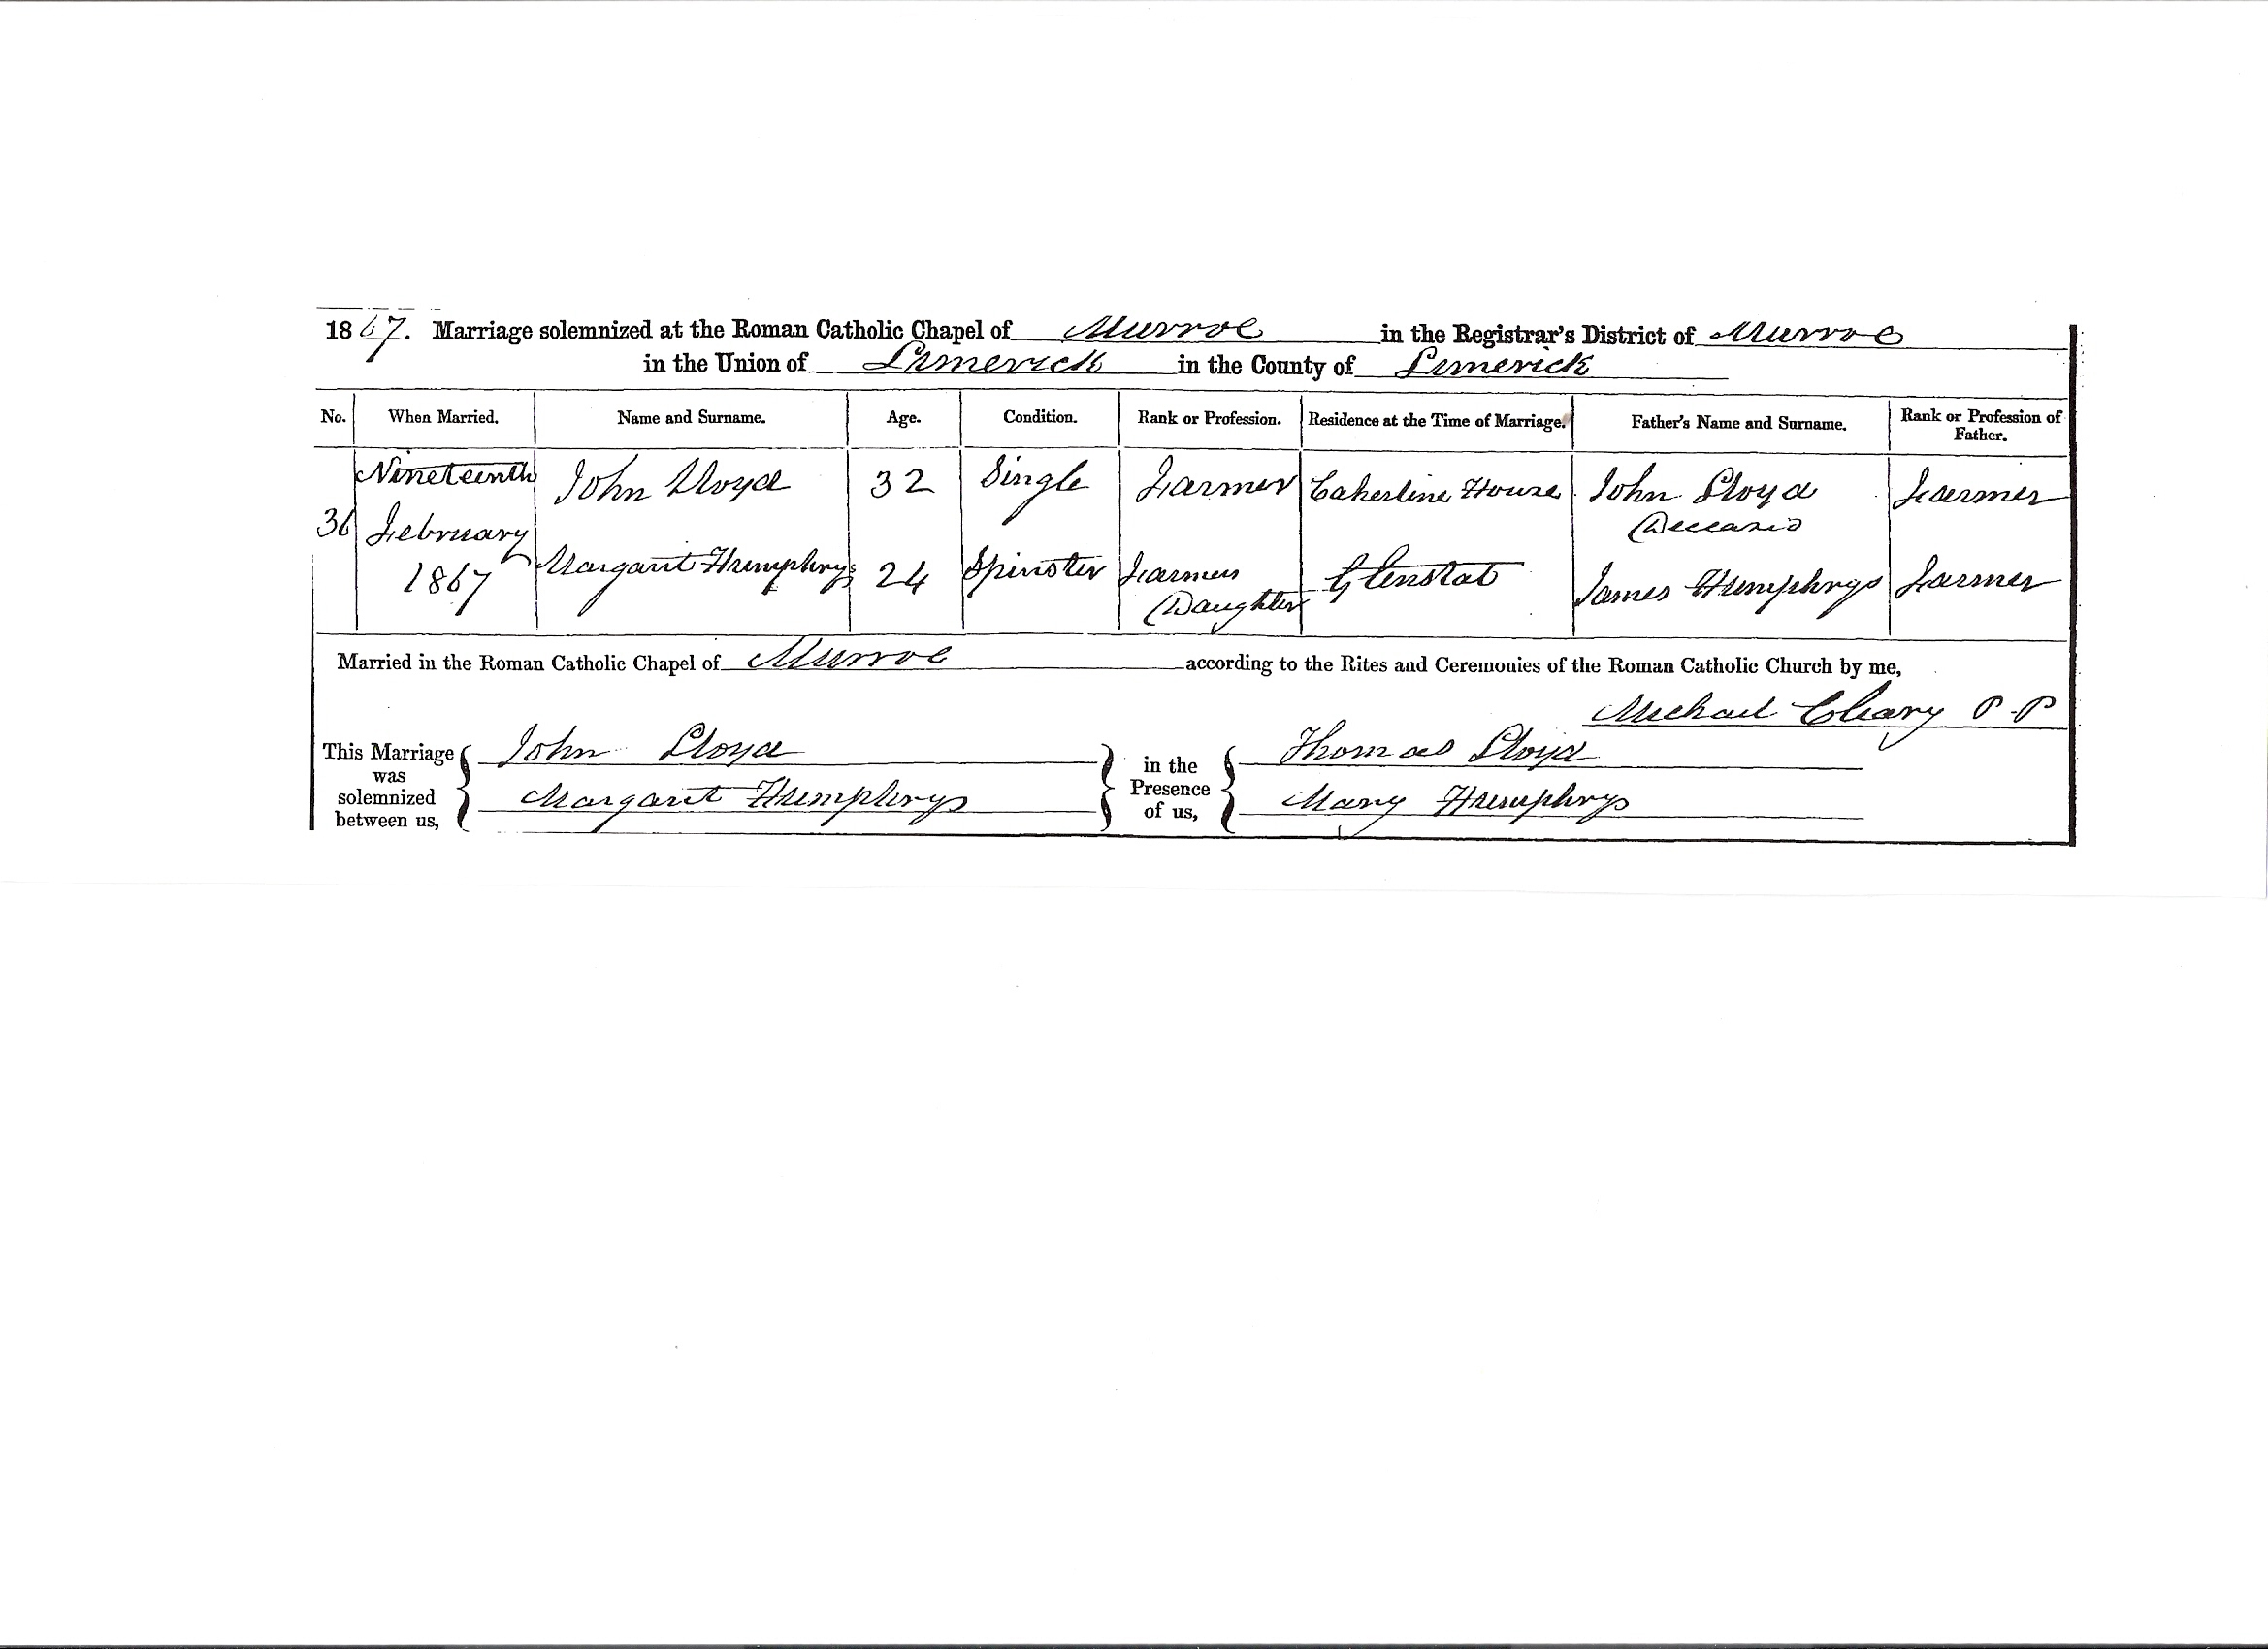 1867. Marriage solemnized at the Roman Catholic Chapel of Murroe in the Registrar's District of Murroe
in the Union of Limerick in the County of Limerick
No. When Married. Name and Surname. Age. Condition. Rank or Profession. Residence at the Time of Marriage. Father's Name and Surname. Rank or Profession of Father.
Nineteenth John Lloyd 32 Single Farmer House John Lloyd Farmer
36 February Deceased
1867 Margaret Humphrys 24 Spinster Farmers Glenstal James Humphrys Farmer
Daughter
Married in the Roman Catholic Chapel of Murroe according to the Rites and Ceremonies of the Roman Catholic Church by me,
Michael Cleary P.P
This Marriage was solemnized between us, John Lloyd in the Presence of us, Thomas Lloyd
Margaret Humphrys Mary Humphrys